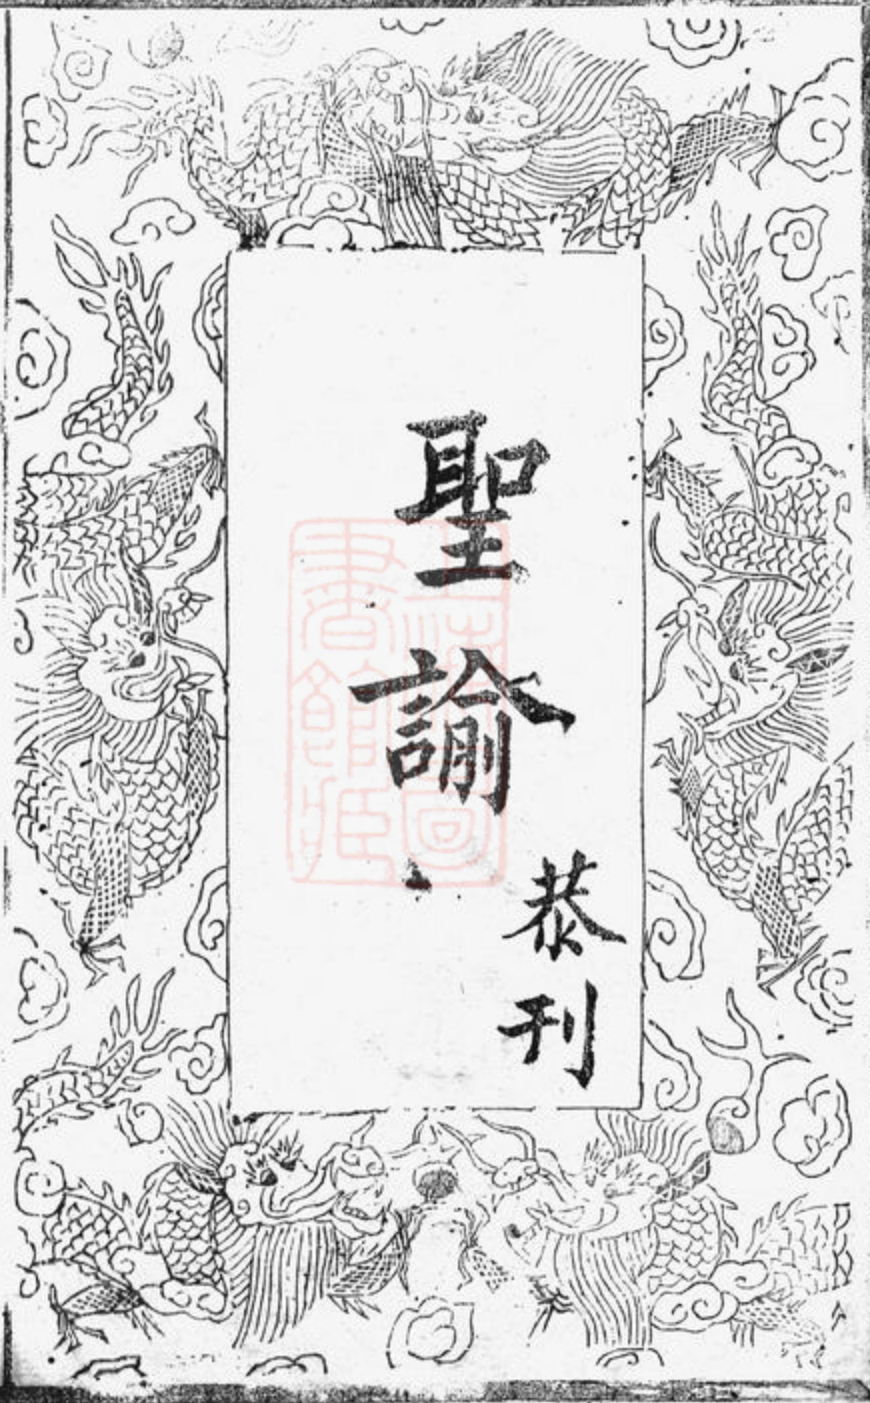 聖諭
恭刊